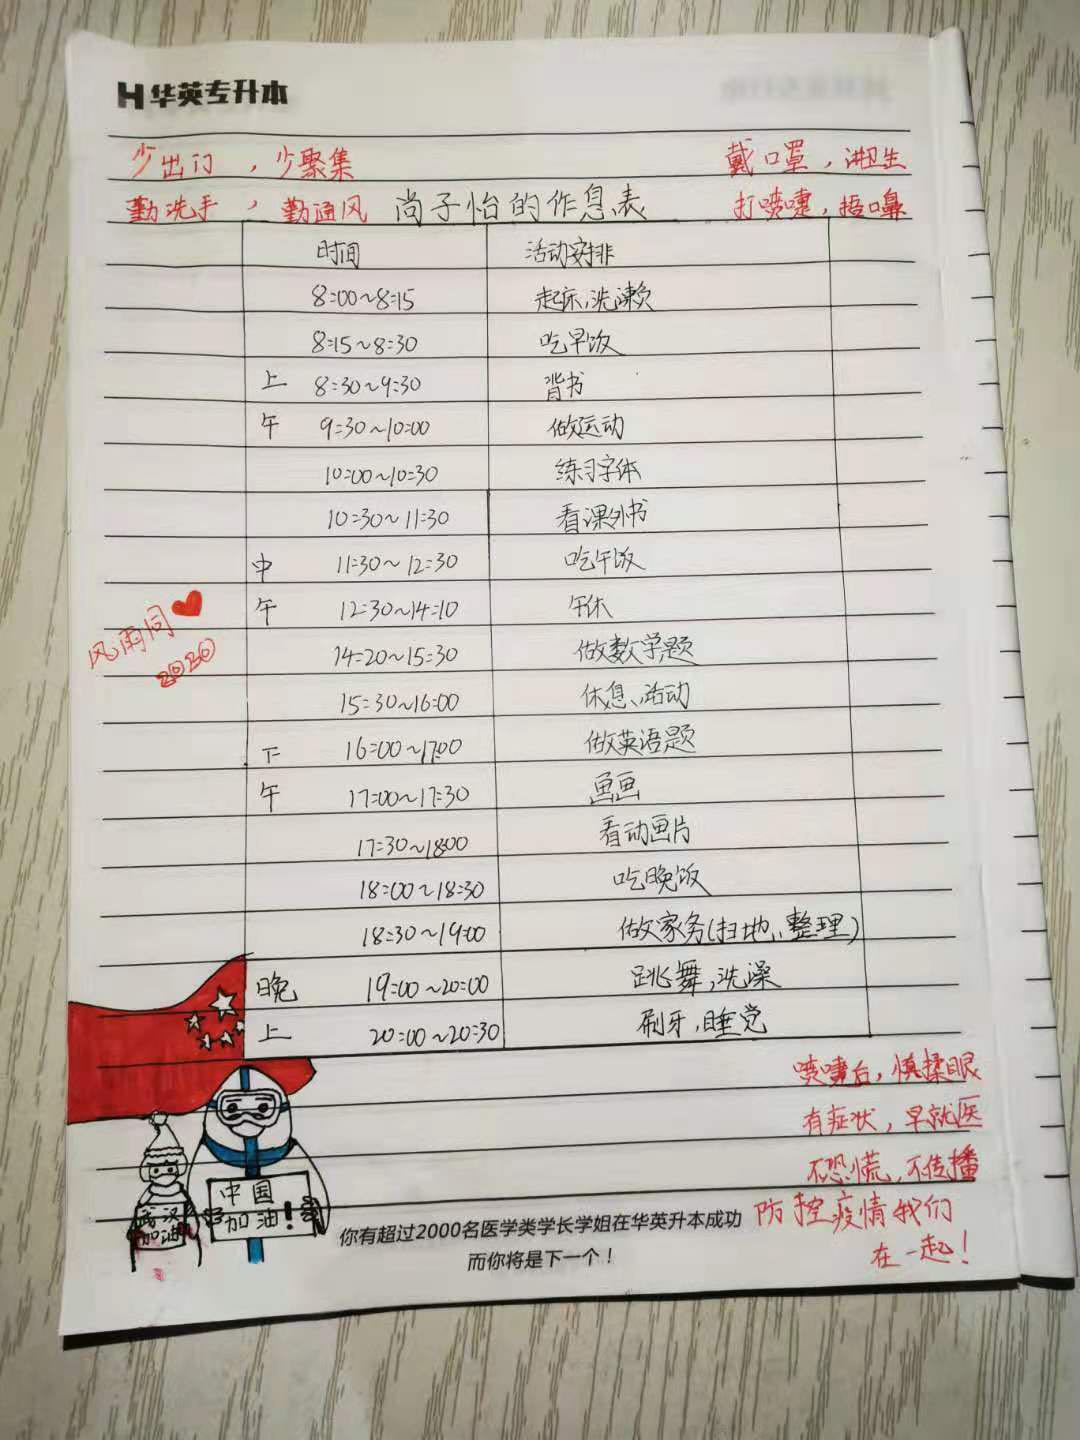 华英专升本
少出门，少聚集
戴口罩，讲卫生
勤洗手，勤通风
尚子怡的作息表
打喷嚏，捂口鼻
时间 活动安排
8:00~8:15 起床,洗漱
8:15~8:30 吃早饭
上 8:30~9:30 背书
午 9:30~10:00 做运动
10:00~10:30 练习字体
10:30~11:30 看课外书
中 11:30~12:30 吃午饭
午 12:30~14:10 午休
14:20~15:30 做数学题
15:30~16:00 休息、活动
下 16:00~17:00 做英语题
午 17:00~17:30 画画
17:30~18:00 看动画片
18:00~18:30 吃晚饭
18:30~19:00 做家务(扫地、整理)
晚 19:00~20:00 跳舞,洗澡
上 20:00~20:30 刷牙,睡觉
风雨同
2020
喷嚏后，慎揉眼
有症状，早就医
不恐慌，不传播
防控疫情我们
在一起！
中国
加油！
武汉
加油
你有超过2000名医学类学长学姐在华英升本成功
而你将是下一个！